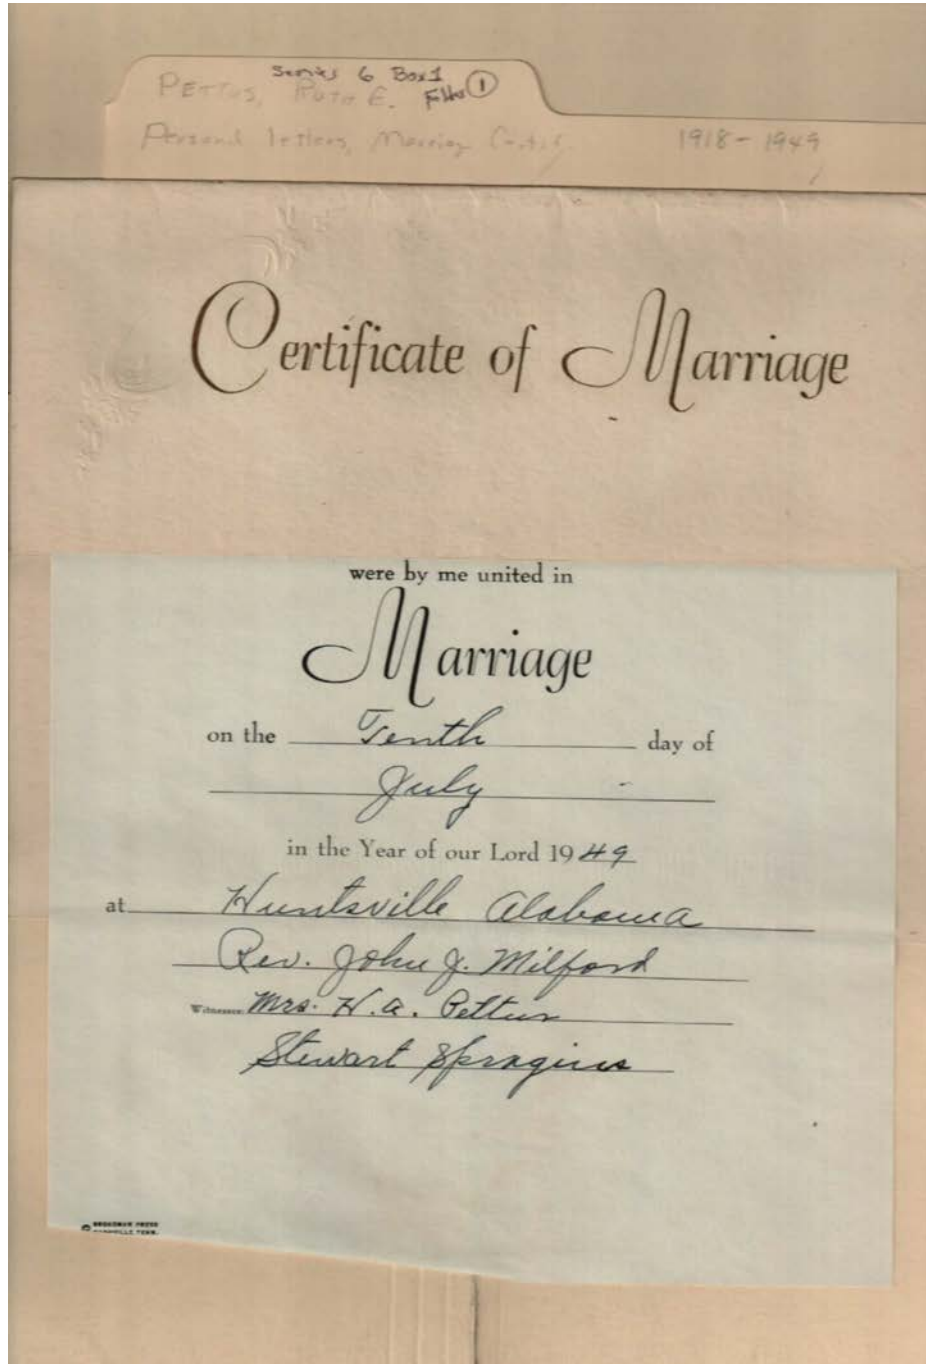 Series 6 Box 1
PETTUS, RUTH E. Fldr 1
Personal letters, Marriage Certif. 1918-1949
Certificate of Marriage
were by me united in
Marriage
on the Tenth day of
July
in the Year of our Lord 1949
at Huntsville Alabama
Rev. John J. Milford
Witnesses: Mrs. H. A. Pettus
Stewart Spragins
© BROADMAN PRESS
NASHVILLE TENN.